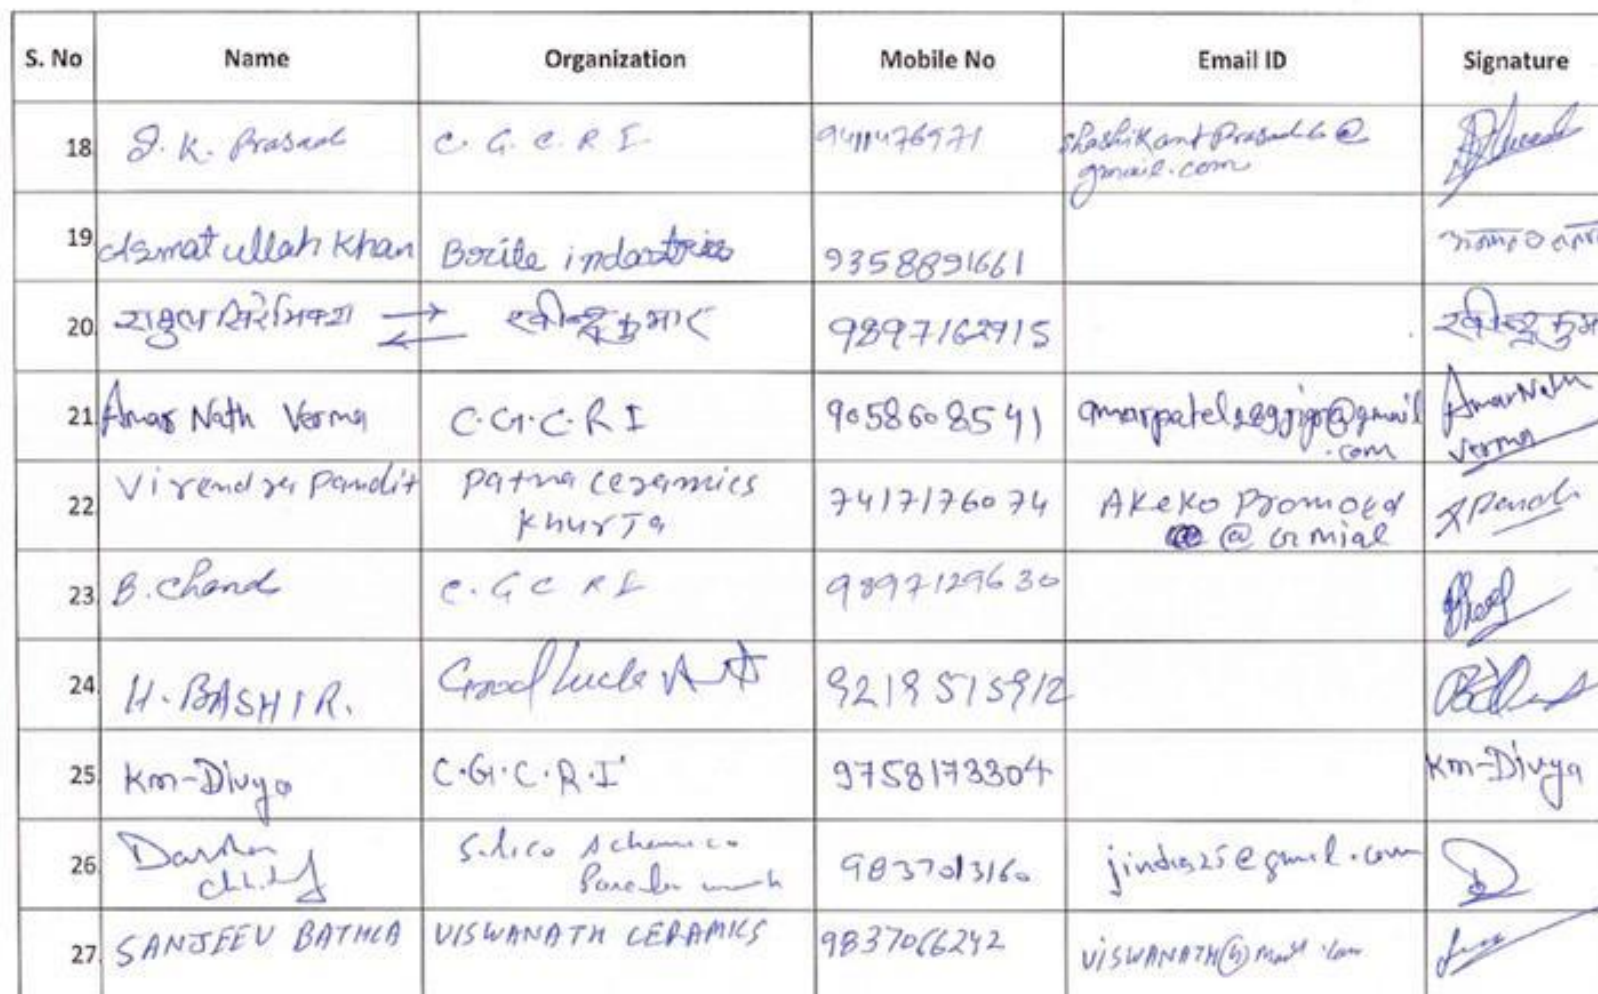 S. No Name Organization Mobile No Email ID Signature
18 S. K. Prasad C. G. C. R I 9411476971 shashikantprasad60@
gmail.com
19. Asmat ullah Khan Borile indastries 9358891661
20. राहुल सिरेमिक्श रवीन्द्र कुमार 9897162915 रवीन्द्र कुमा
21. Amar Nath Verma C.G.C.R I 9058608541 @gmail Amar Nath
.com Verma
22. Virendra Pandit Patna ceramics 7417176074 AKeKo Promoed
KhurJa @ Gmial
23. B. Chand C. G C R I 9897129630
24. H. BASHIR. Good luck Art 9219515912
25. Km-Divya C.G.C.R.I 9758173304 Km-Divya
26. Darshan 9837013160 jindia25@gmail.com
27. SANJEEV BATHLA VISWANATH CERAMICS 9837066242